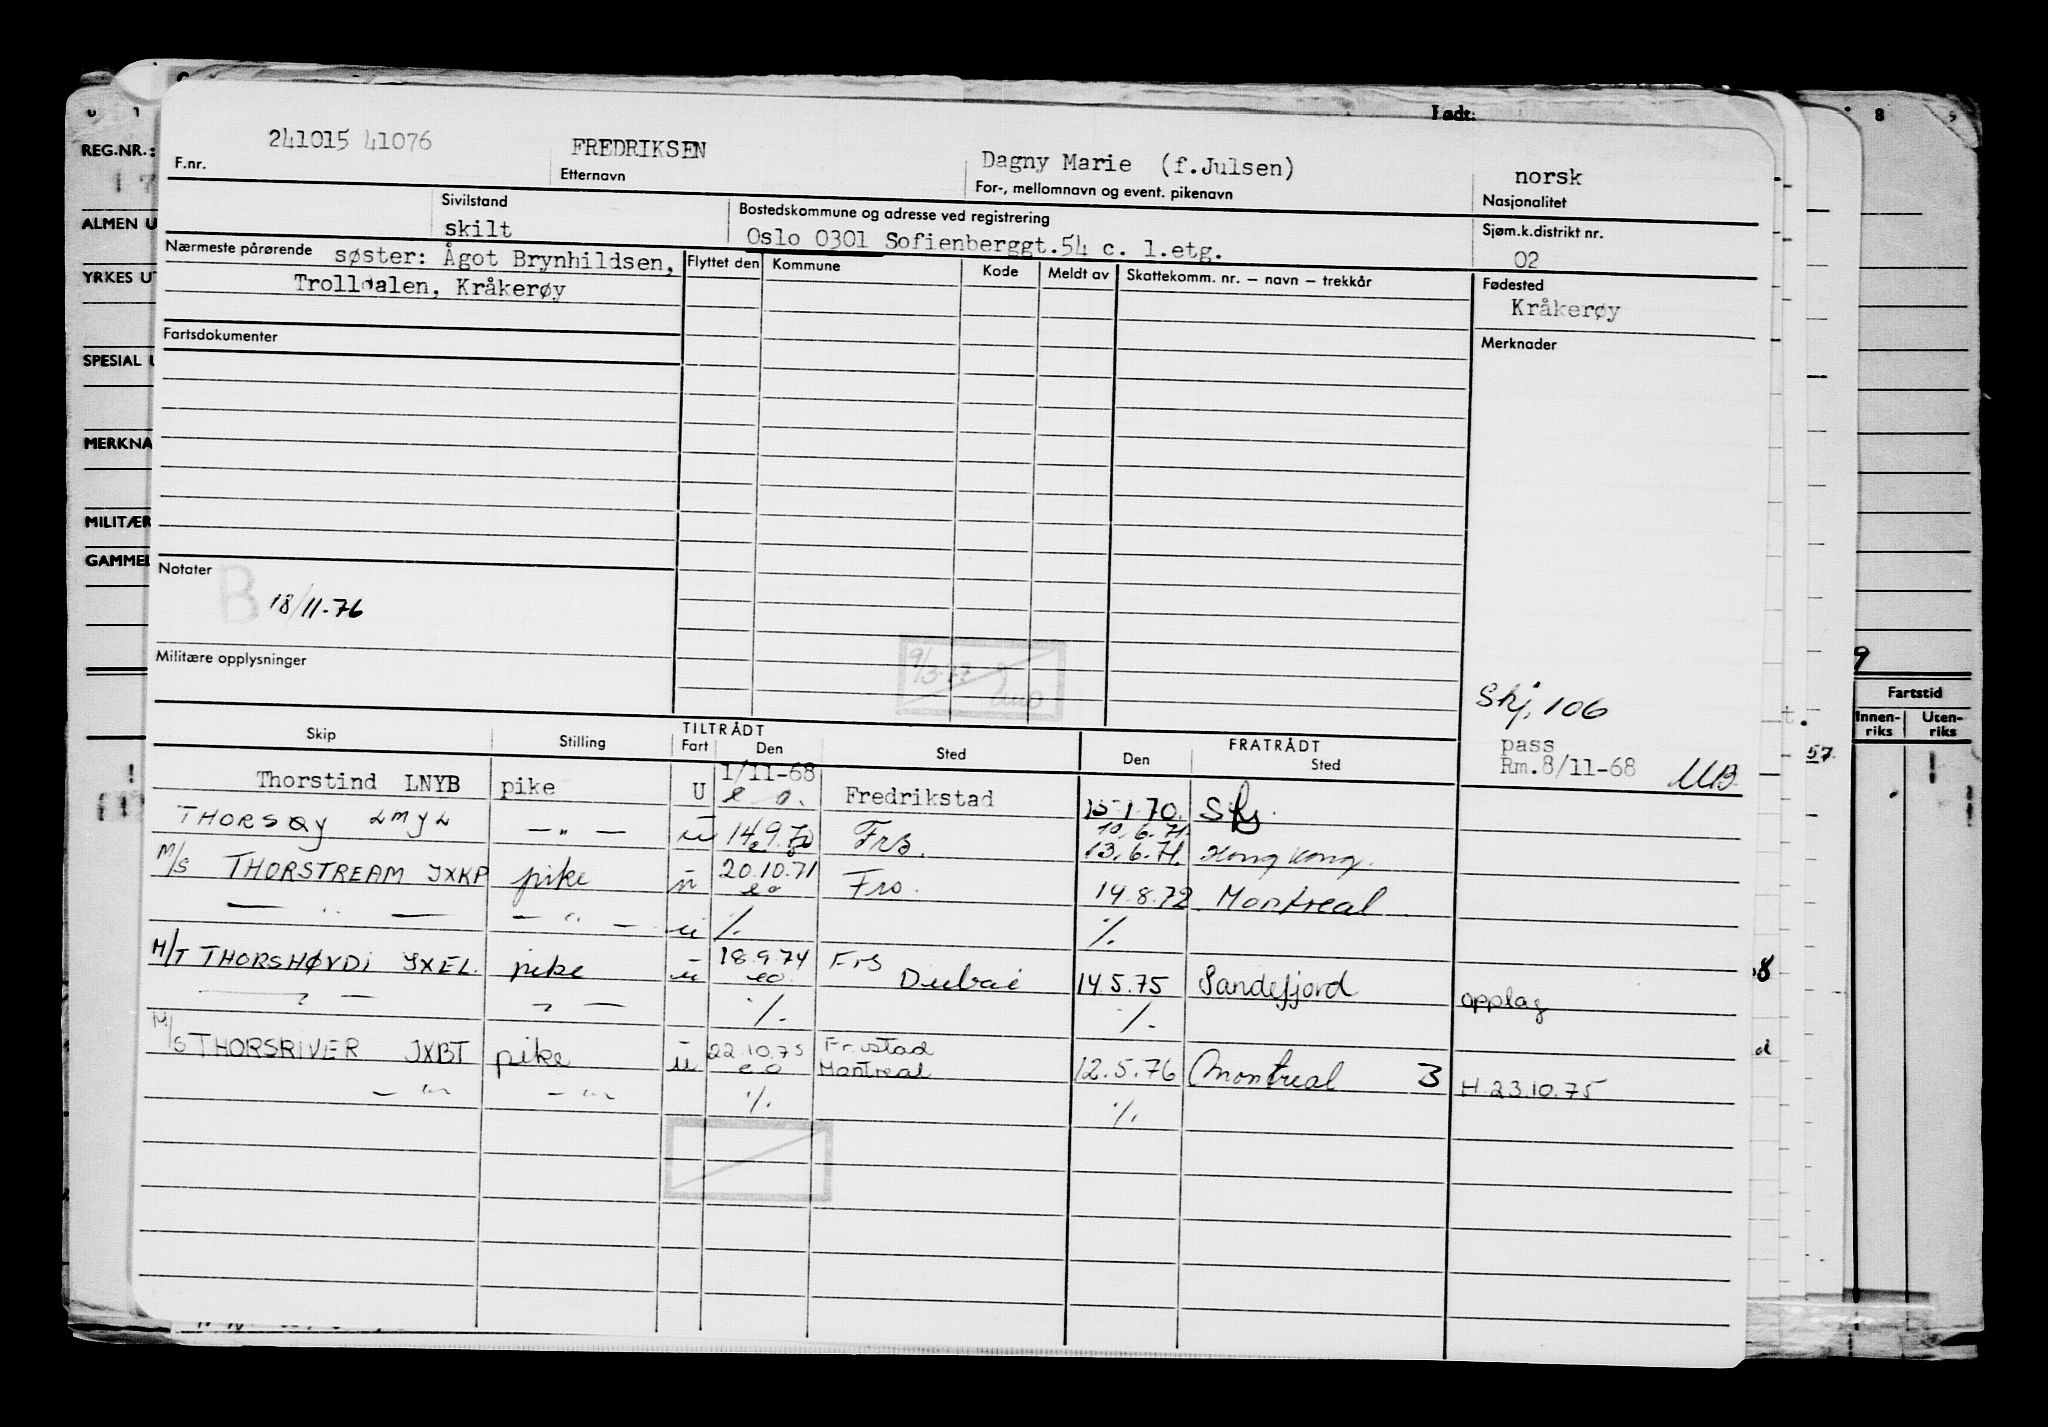 REG.NR.:
ALMEN U
YRKES UT
SPESIAL U
MERKNA
MILITÆR
GAMMEL
Født:
241015 41076 FREDRIKSEN Dagny Marie (f.Julsen) norsk
F.nr. Etternavn For-, mellomnavn og event. pikenavn Nasjonalitet
Sivilstand Bostedskommune og adresse ved registrering Sjøm.k.distrikt nr.
skilt Oslo 0301 Sofienberggt.54 c. 1.etg. 02
Nærmeste pårørende søster: Ågot Brynhildsen,
Trolldalen, Kråkerøy
Flyttet den Kommune Kode Meldt av Skattekomm. nr. — navn — trekkår Fødested
Kråkerøy
Fartsdokumenter Merknader
Notater
B 18/11-76
Militære opplysninger
9/3-77
Skj. 106
pass
Rm.8/11-68 MB.
Fartstid
Innen-riks Uten-riks
TILTRÅDT FRATRÅDT
Skip Stilling Fart Den Sted Den Sted
Thorstind LNYB pike U 1/11-68 e o. Fredrikstad 15-1.70. Sfj.
THORSØY LMYL — " — u 14.9.70 Fr.s. 10.6.71. 13.6.71. Hong Kong.
M/S THORSTREAM JXKP pike u 20.10.71 eo Fro. 14.8.72 Montreal
— " — — " — u %. %.
M/T THORSHØVDI JXEL. pike u 18.9.74 eo Frs Dubai 14.5.75 Sandefjord opplag
— " — " — %. %.
M/S THORSRIVER JXBT pike u 22.10.75 eo Fr.stad Montreal 12.5.76 Montreal 3 H.23.10.75
— " — — " — %. %.